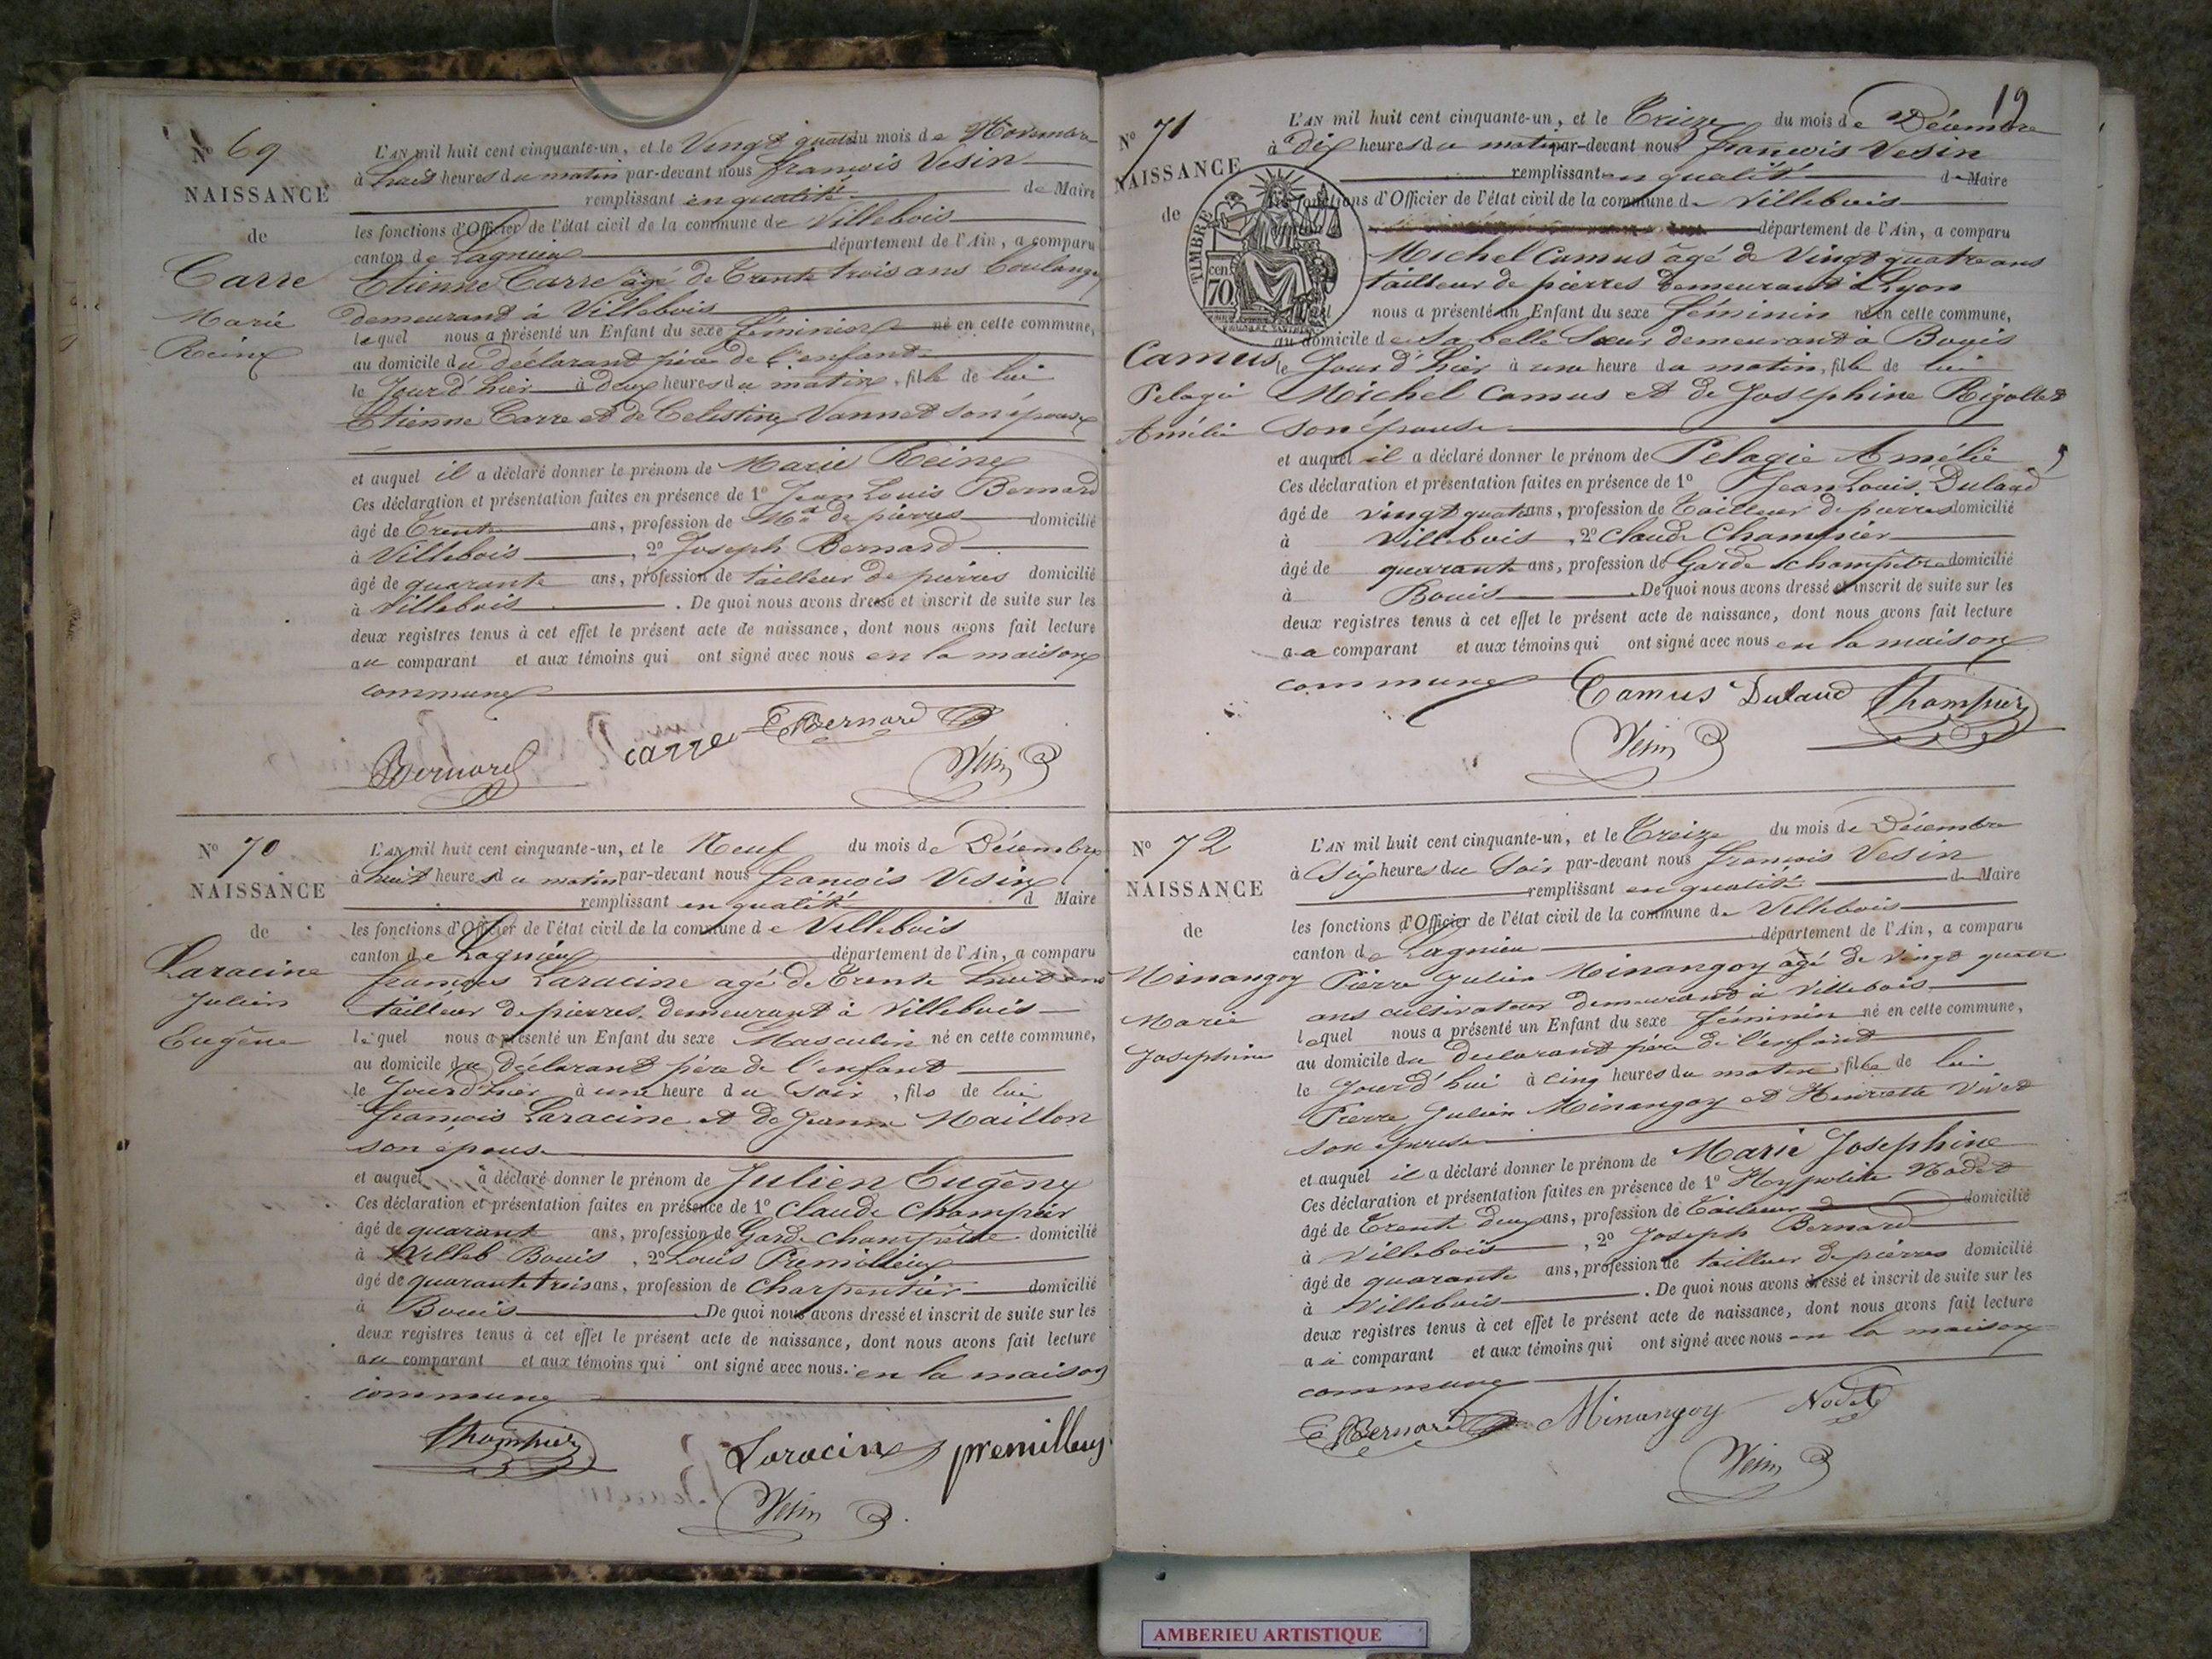 N° 69
NAISSANCE
de
Carre
Marie
Reine
L'AN mil huit cent cinquante-un, et le Vingt quatre du mois de Novembre
à huit heures du matin par-devant nous François Vesin
remplissant en qualité de Maire
les fonctions d'Officier de l'état civil de la commune de Villebois
canton de Lagnieu département de l'Ain, a comparu
Etienne Carre âgé de Trente trois ans boulanger
demeurant à Villebois
lequel nous a présenté un Enfant du sexe féminin né en cette commune,
au domicile du déclarant père de l'enfant
le Jour d'hier à deux heures du matin, fille de lui
Etienne Carre et de Celestine Vannet son épouse
et auquel il a déclaré donner le prénom de Marie Reine
Ces déclaration et présentation faites en présence de 1° Jean Louis Bernard
âgé de Trente ans, profession de Md de pierres domicilié
à Villebois, 2° Joseph Bernard
âgé de quarante ans, profession de tailleur de pierres domicilié
à Villebois. De quoi nous avons dressé et inscrit de suite sur les
deux registres tenus à cet effet le présent acte de naissance, dont nous avons fait lecture
au comparant et aux témoins qui ont signé avec nous en la maison
commune
Bernard carre Bernard
Vesin
N° 70
NAISSANCE
de
Laracine
Julien
Eugène
L'AN mil huit cent cinquante-un, et le Neuf du mois de Décembre
à huit heures du matin par-devant nous François Vesin
remplissant en qualité d Maire
les fonctions d'Officier de l'état civil de la commune de Villebois
canton de Lagnieu département de l'Ain, a comparu
françois Laracine agé de Trente huit ans
tailleur de pierres demeurant à Villebois
lequel nous a présenté un Enfant du sexe Masculin né en cette commune,
au domicile du déclarant père de l'enfant
le Jour d'hier à une heure du soir, fils de lui
françois Laracine et de Jeanne Maillon
son épouse
et auquel a déclaré donner le prénom de Julien Eugène
Ces déclaration et présentation faites en présence de 1° Claude Champier
âgé de quarante ans, profession de Garde champêtre domicilié
à Villeb Bouis, 2° Louis Premillieux
âgé de quarante trois ans, profession de Charpentier domicilié
à Bouis De quoi nous avons dressé et inscrit de suite sur les
deux registres tenus à cet effet le présent acte de naissance, dont nous avons fait lecture
au comparant et aux témoins qui ont signé avec nous. en la maison
commune
Champier Laracine premilleux
Vesin
19
N° 71
NAISSANCE
de
TIMBRE
cen
70
Camus
Pelagie
Amélie
L'AN mil huit cent cinquante-un, et le Treize du mois de Décembre
à dix heures du matin par-devant nous François Vesin
remplissant en qualité de Maire
fonctions d'Officier de l'état civil de la commune de Villebois
département de l'Ain, a comparu
Michel Camus âgé de Vingt quatre ans
tailleur de pierres demeurant à Lyon
nous a présenté un Enfant du sexe féminin né en cette commune,
au domicile de sa belle Sœur demeurant à Bouis
le Jour d'hier à une heure du matin, fille de lui
Michel Camus et de Josephine Rigollet
son épouse
et auquel il a déclaré donner le prénom de Pelagie Amélie
Ces déclaration et présentation faites en présence de 1° Jean Louis Dulaud
âgé de vingt quatre ans, profession de Tailleur de pierres domicilié
à Villebois, 2° Claude Champier
âgé de quarante ans, profession de Garde champêtre domicilié
à Bouis De quoi nous avons dressé et inscrit de suite sur les
deux registres tenus à cet effet le présent acte de naissance, dont nous avons fait lecture
au comparant et aux témoins qui ont signé avec nous en la maison
commune
Camus Dulaud Champier
Vesin
N° 72
NAISSANCE
de
Minangoy
Marie
Josephine
L'AN mil huit cent cinquante-un, et le Treize du mois de Décembre
à Six heures du Soir par-devant nous François Vesin
remplissant en qualité de Maire
les fonctions d'Officier de l'état civil de la commune de Villebois
canton de Lagnieu département de l'Ain, a comparu
Pierre Julien Minangoy âgé de vingt quatre
ans cultivateur demeurant à Villebois
lequel nous a présenté un Enfant du sexe féminin né en cette commune,
au domicile du declarant père de l'enfant
le Jourd'hui à cinq heures du matin, fille de lui
Pierre Julien Minangoy et Henriette Vivet
son épouse
et auquel il a déclaré donner le prénom de Marie Josephine
Ces déclaration et présentation faites en présence de 1° Hypolite Nodet
âgé de Trente deux ans, profession de Tailleur d domicilié
à Villebois, 2° Joseph Bernard
âgé de quarante ans, profession de tailleur de pierres domicilié
à Villebois. De quoi nous avons dressé et inscrit de suite sur les
deux registres tenus à cet effet le présent acte de naissance, dont nous avons fait lecture
au comparant et aux témoins qui ont signé avec nous en la maison
commune
Bernard Minangoy Nodet
Vesin
AMBERIEU ARTISTIQUE